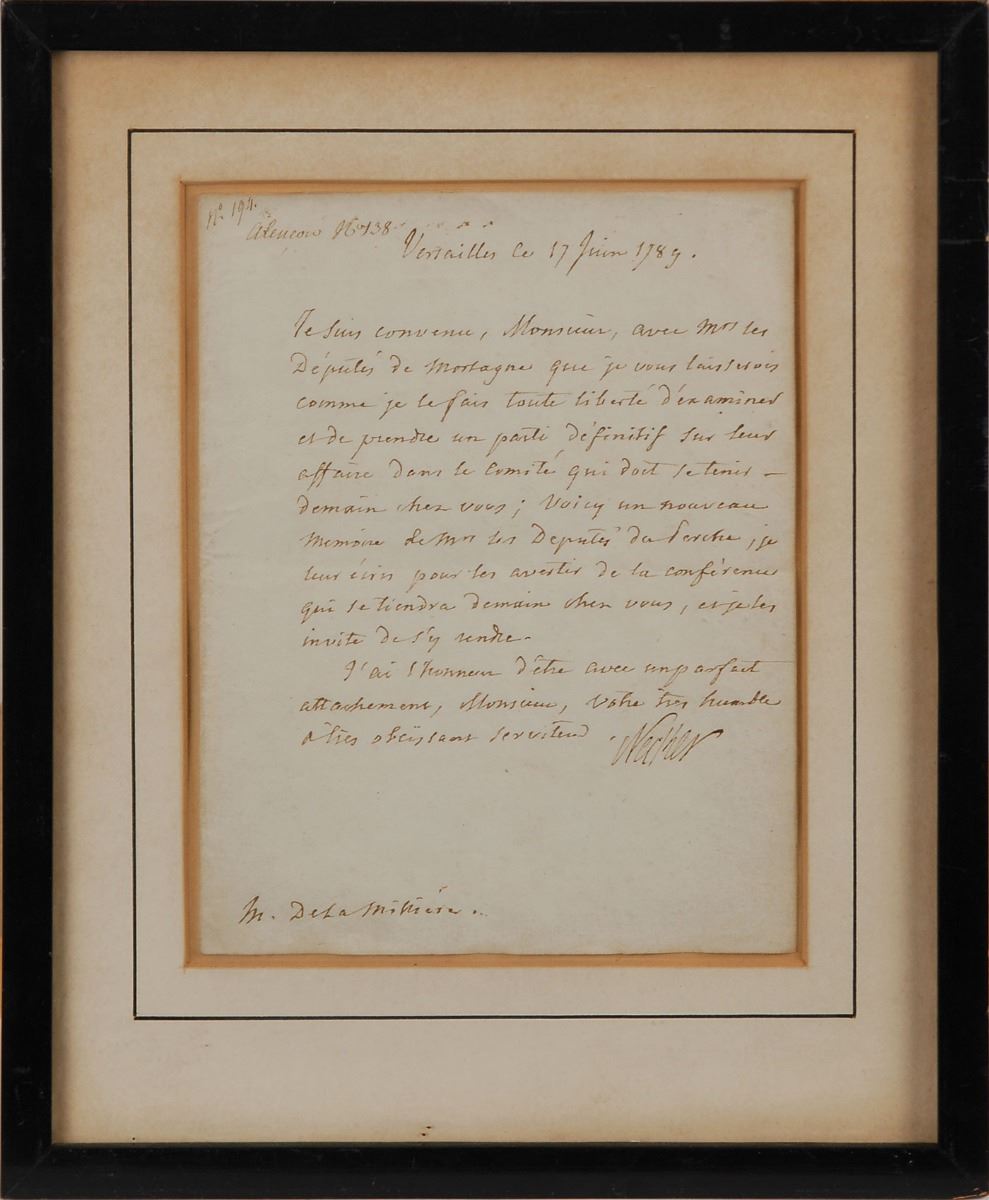 No. 194.
Alençon No. 138
Versailles le 17 Juin 1789.
Je suis convenu, Monsieur, avec Mrs les
Députés de Mortagne que je vous laisserois
comme je le fais toute liberté d'éxaminer
et de prendre un parti définitif sur leur
affaire dans le Comité qui doit se tenir –
demain chez vous ; Voicy un nouveau
Mémoire de Mrs les Députés du Perche, je
leur écris pour les avertir de la conférence
qui se tiendra demain chez vous, et je les
invite de s'y rendre.
J'ai l'honneur d'être avec un parfait
attachement, Monsieur, votre très humble
& très obëissant serviteur.
Necker
M. De La Milliere.